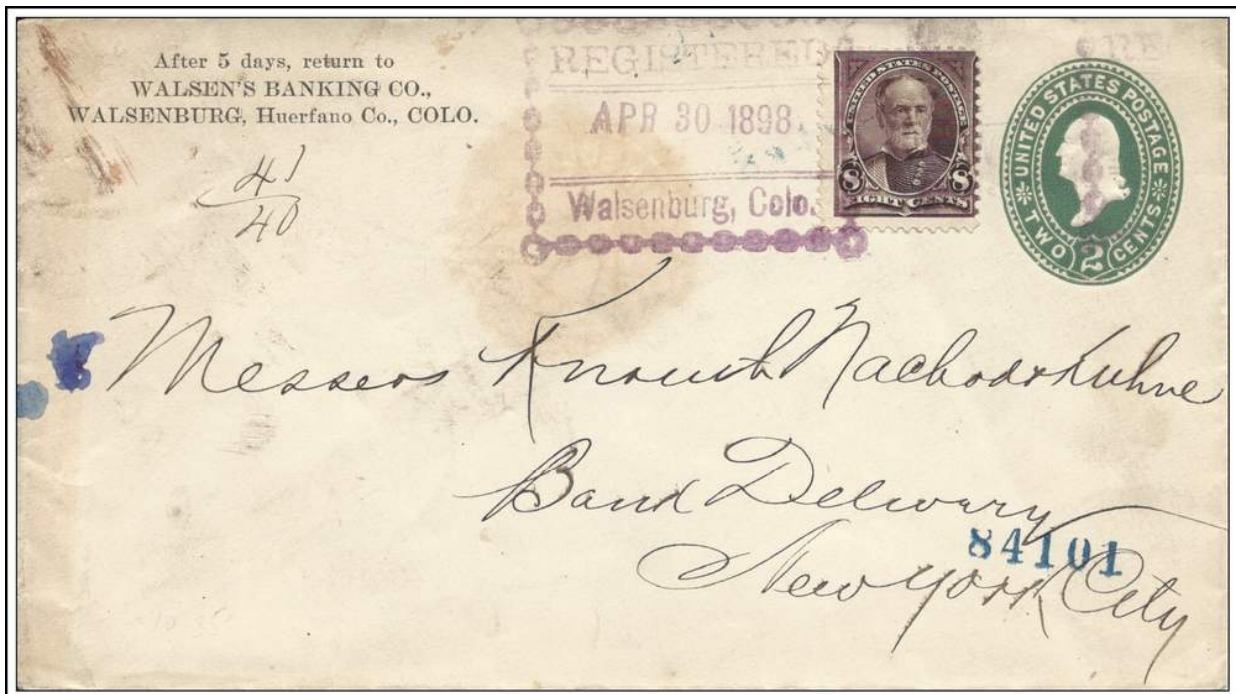 After 5 days, return to
WALSEN'S BANKING CO.,
WALSENBURG, Huerfano Co., COLO.
41
40
REGISTERED
APR 30 1898.
Walsenburg, Colo.
UNITED STATES POSTAGE
8 8
EIGHT CENTS
UNITED STATES POSTAGE
TWO 2 CENTS
RE
Messers Knauth Nachod & Kuhne
Bank Delivery
84101
New York City